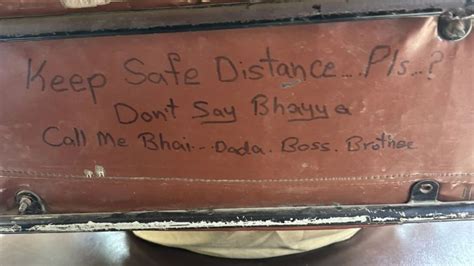 Keep Safe Distance...Pls..?
Don't Say Bhayya
Call Me Bhai...Dada. Boss. Brother